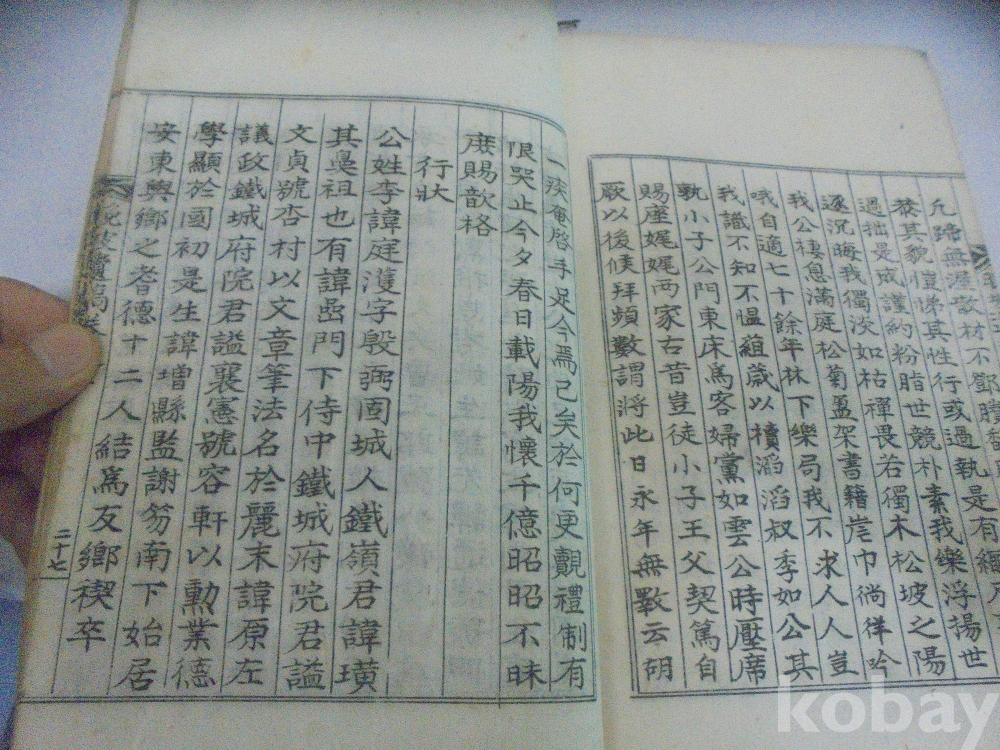 允蹄無渥教材不
恭其貌愷悌其性行或過執是有
過拙是成謹約粉脂世競朴素我樂浮揚世
遂沉晦我獨淡如枯禪畏若獨木松坡之陽
我公棲息滿庭松菊盈架書籍崖巾徜徉吟
哦自適七十餘年林下樂局我不求人人豈
我識不知不慍蘊歲以櫝滔滔叔季如公其
孰小子公門東床爲客婦黨如雲公時壓席
賜座娓娓兩家古昔豈徒小子王父契篤自
厥以後候拜頻數謂將此日永年無斁云胡
一疾奄啓手足今焉已矣於何更覿禮制有
限哭止今夕春日載陽我懷千億昭昭不昧
庶賜歆格
行狀
公姓李諱庭濩字殷弼固城人鐵嶺君諱璜
其鼻祖也有諱嵒門下侍中鐵城府院君謚
文貞號杏村以文章筆法名於麗末諱原左
議政鐵城府院君謚襄憲號容軒以勳業德
學顯於國初是生諱增縣監謝笏南下始居
安東與鄉之耆德十二人結爲友鄉禊卒
二十七
kobay